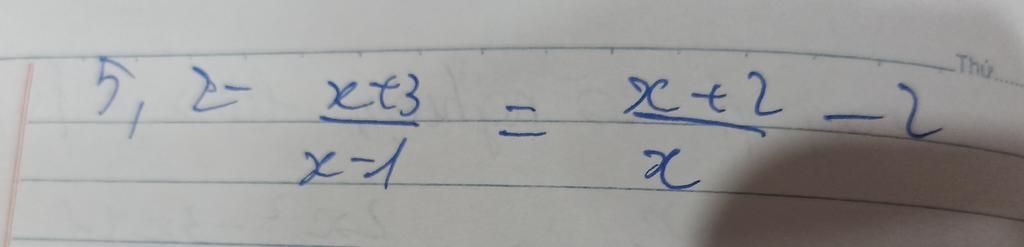 Thứ.....
5, 2 - \frac{x+3}{x-1} = \frac{x+2}{x} - 2